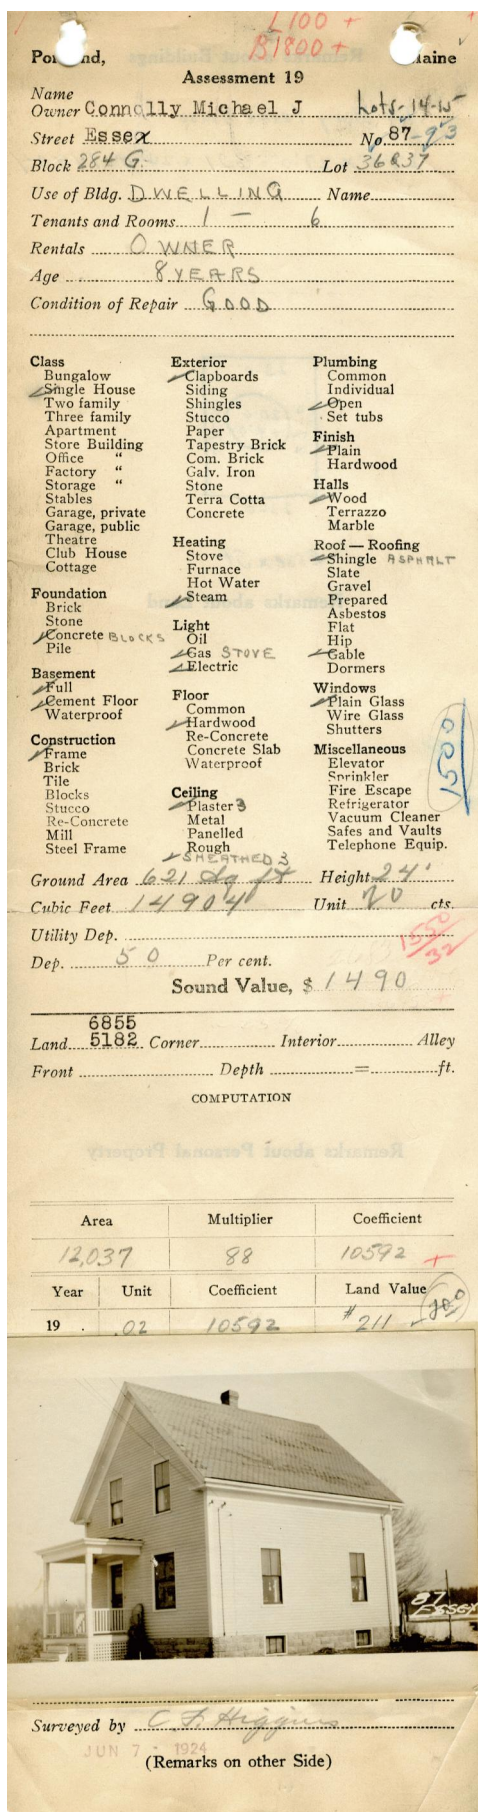 L100 +
B1800 +
+
Po nd, Maine
Assessment 19
Name
Owner Connolly Michael J Lots-14-15
Street Essex No. 87-93
Block 284 G. Lot 36&37
Use of Bldg. DWELLING Name
Tenants and Rooms 1 — 6
Rentals OWNER
Age 8 YEARS
Condition of Repair GOOD
Class
Bungalow
Single House
Two family
Three family
Apartment
Store Building
Office "
Factory "
Storage "
Stables
Garage, private
Garage, public
Theatre
Club House
Cottage
Foundation
Brick
Stone
Concrete BLOCKS
Pile
Basement
Full
Cement Floor
Waterproof
Construction
Frame
Brick
Tile
Blocks
Stucco
Re-Concrete
Mill
Steel Frame
Exterior
Clapboards
Siding
Shingles
Stucco
Paper
Tapestry Brick
Com. Brick
Galv. Iron
Stone
Terra Cotta
Concrete
Heating
Stove
Furnace
Hot Water
Steam
Light
Oil
Gas STOVE
Electric
Floor
Common
Hardwood
Re-Concrete
Concrete Slab
Waterproof
Ceiling
Plaster 3
Metal
Panelled
Rough
SHEATHED 3
Plumbing
Common
Individual
Open
Set tubs
Finish
Plain
Hardwood
Halls
Wood
Terrazzo
Marble
Roof — Roofing
Shingle ASPHALT
Slate
Gravel
Prepared
Asbestos
Flat
Hip
Gable
Dormers
Windows
Plain Glass
Wire Glass
Shutters
Miscellaneous
Elevator
Sprinkler
Fire Escape
Refrigerator
Vacuum Cleaner
Safes and Vaults
Telephone Equip.
1500
Ground Area 621 sq ft Height 24'
Cubic Feet 14904 Unit 20 cts.
Utility Dep.
1550
32
Dep. 50 Per cent.
Sound Value, $ 1490
6855
Land 5182 Corner Interior Alley
Front Depth = ft.
COMPUTATION
Remarks about Personal Property
Area Multiplier Coefficient
12,037 88 10592 +
Year Unit Coefficient Land Value
19 . .02 10592 $211
87
ESSEX
Surveyed by C. F. Higgins
JUN 7 - 1924
(Remarks on other Side)